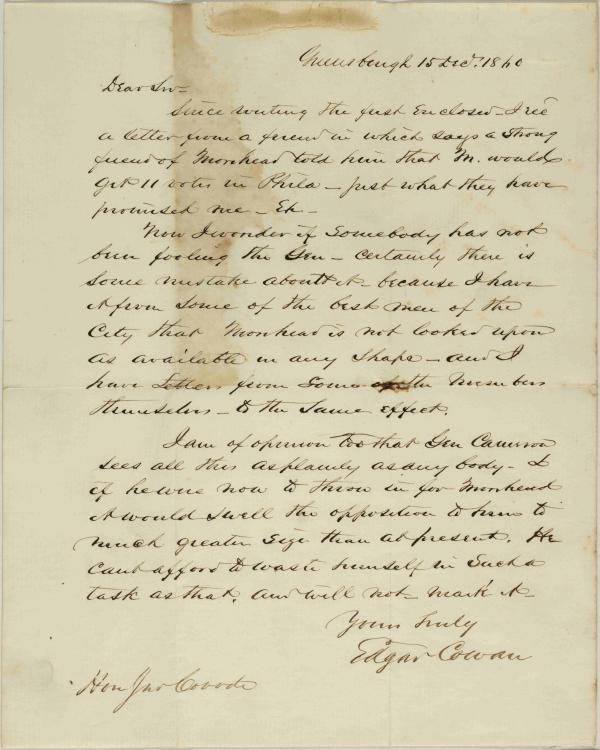 Greensburgh 15 Dec. 1860
Dear Sir—
Since writing the first Enclosed— I rec'd
a letter from a friend in which says a strong
friend of Morehead told him that M. would
get 11 votes in Phila — just what they have
promised me — Eh —
Now I wonder if Somebody has not
been fooling the Gen — certainly there is
some mistake about it — because I have
it from some of the best men of the
City that Morehead is not looked upon
as available in any Shape — and I
have Letters from Some of the Members
themselves — to the Same effect.
I am of opinion too that Gen Cameron
sees all this as plainly as any body — &
if he were now to throw in for Morehead
it would swell the opposition to him to
much greater size than at present. He
cant afford to waste himself in Such a
task as that, and will not — mark it —
Yours truly
Edgar Cowan
Hon Jno Covode